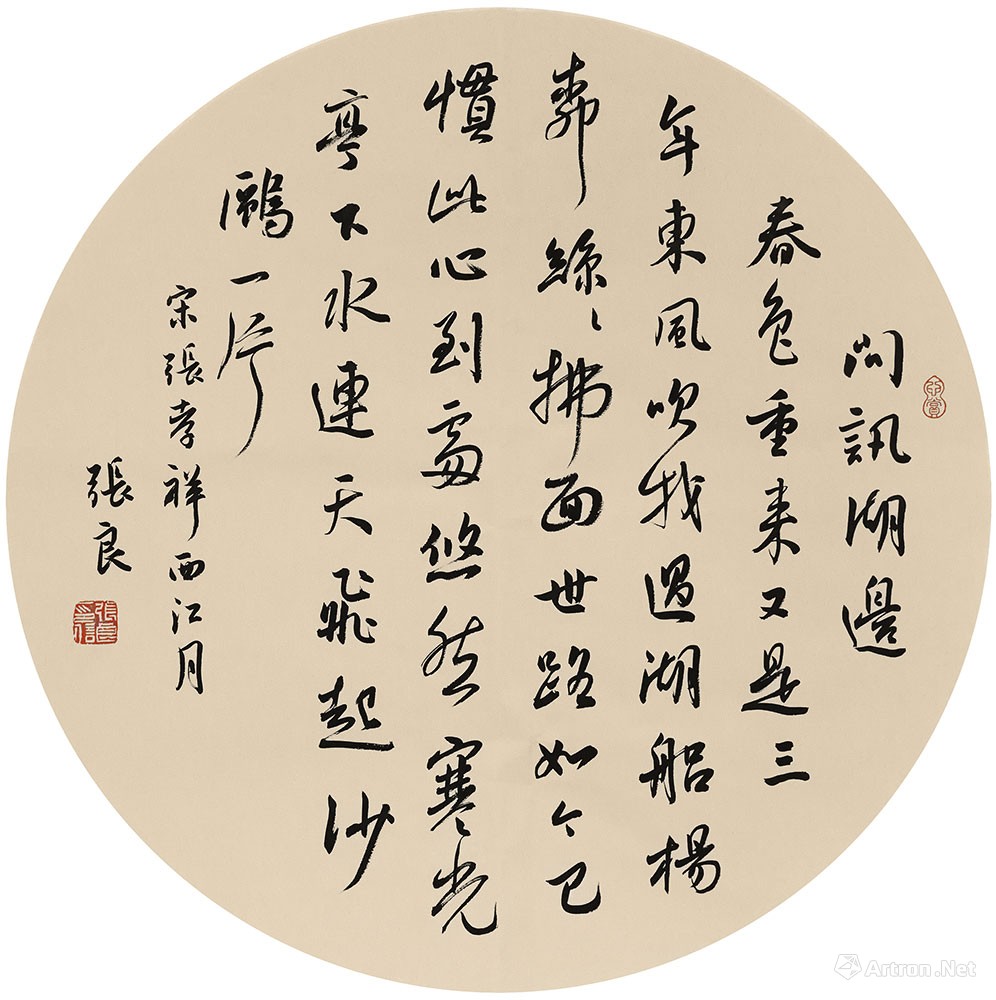 問訊湖邊
春色重来又是三
年東風吹我過湖船楊
桺絲〻拂面世路如今已
慣此心到處悠然寒光
亭下水連天飛起沙
鷗一片
宋張孝祥西江月
張良
Artron.Net